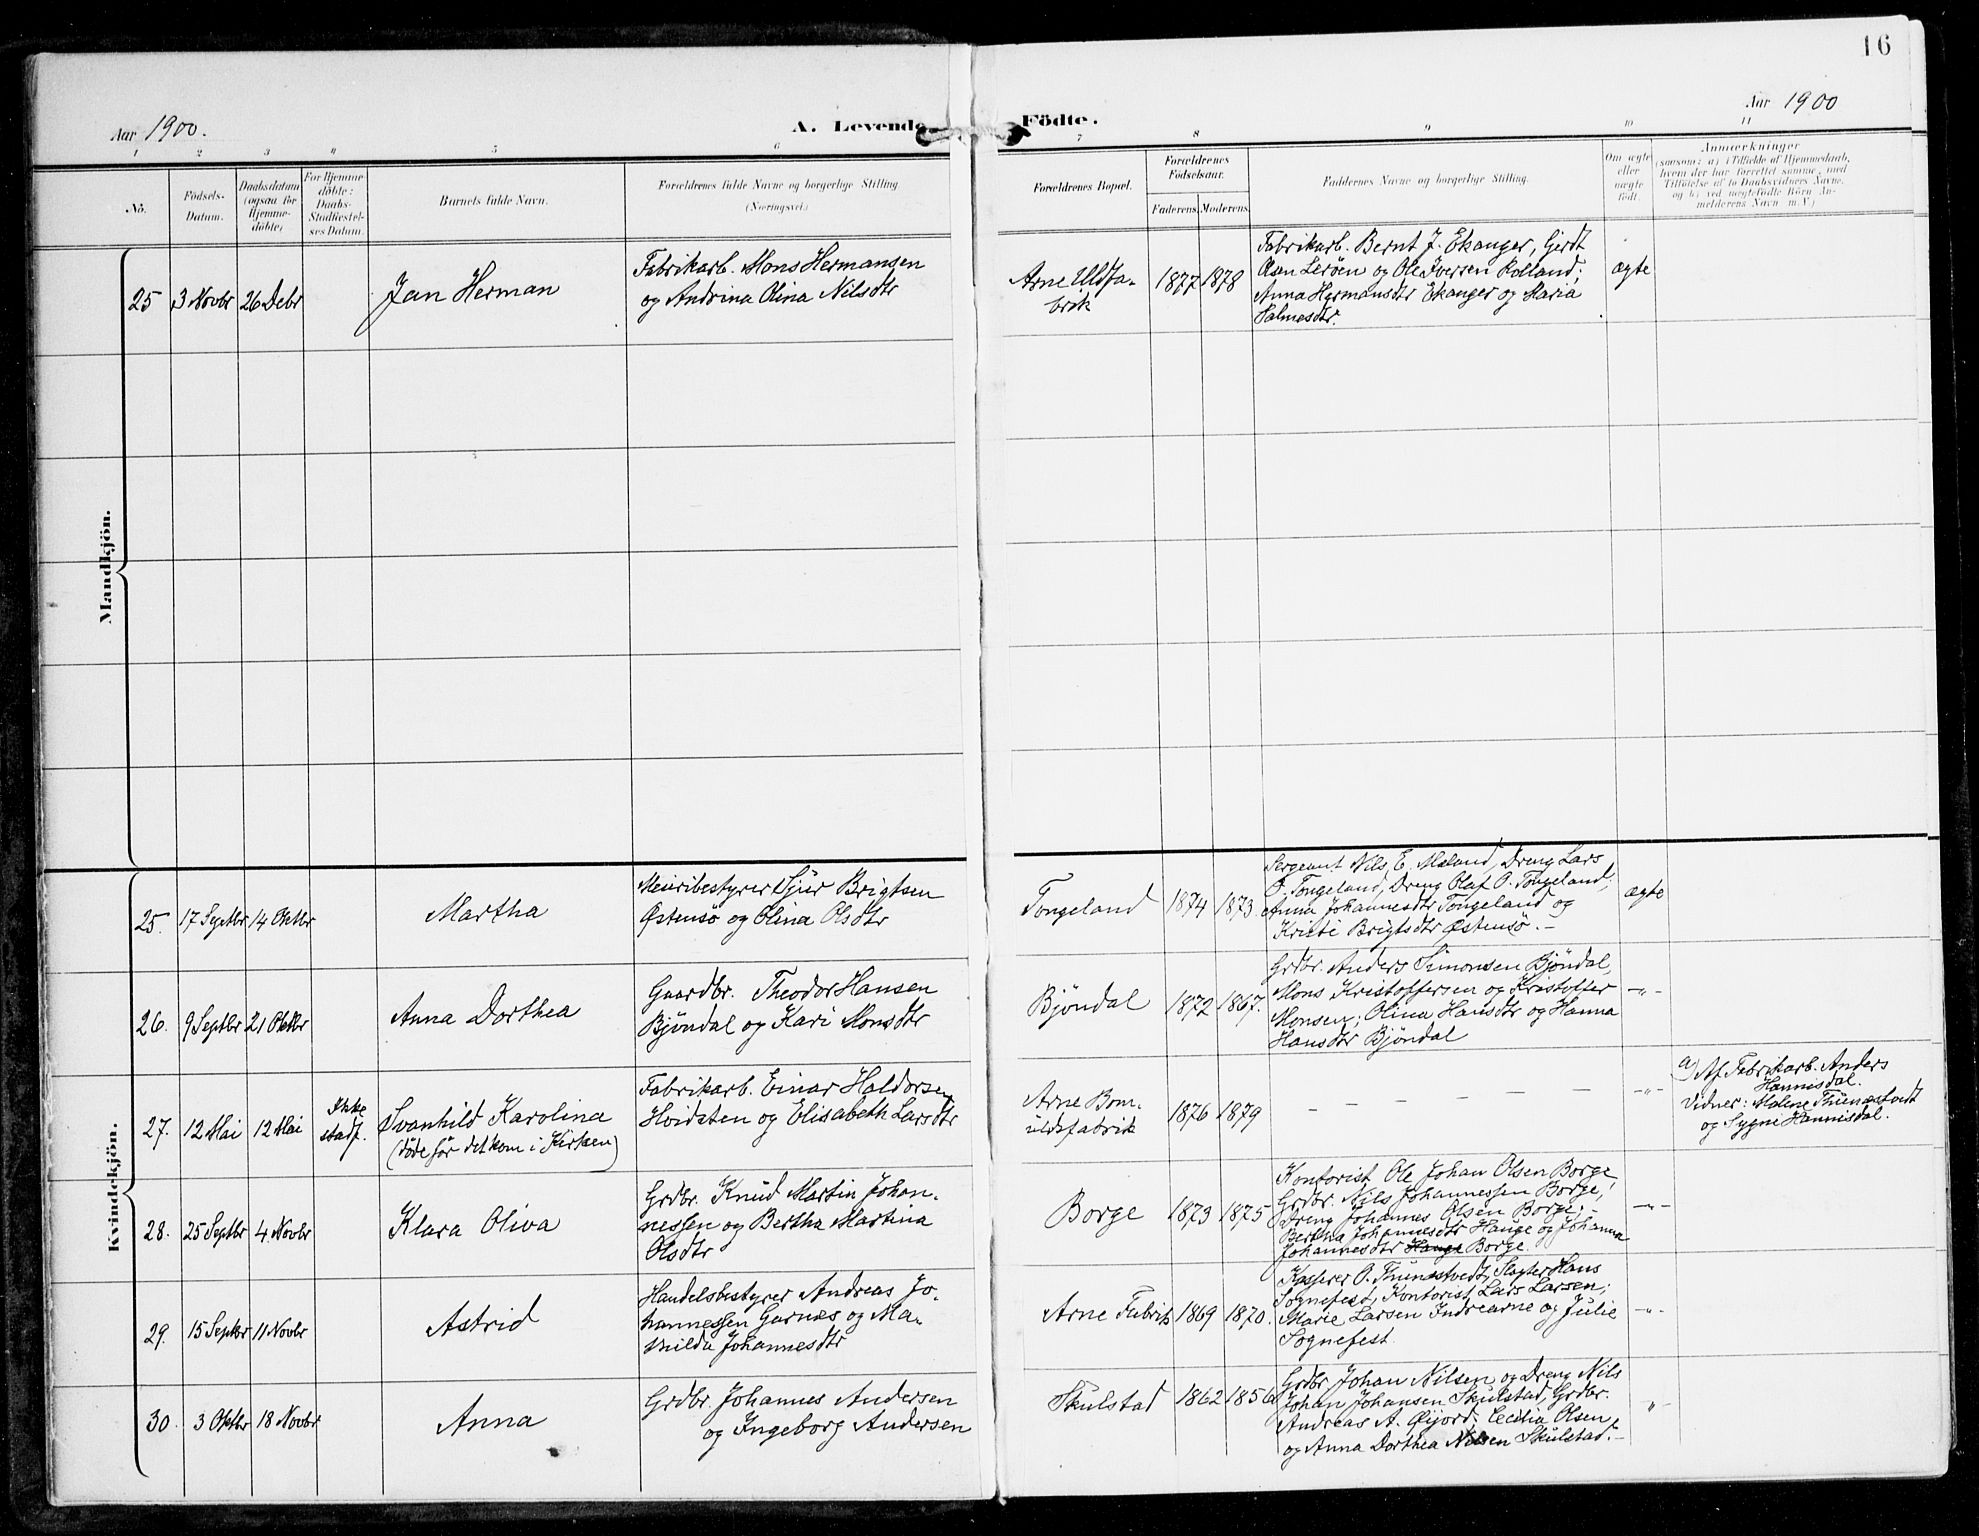 16
Aar 1900.
A. Levende
Födte.
Aar 1900
1 2 3 4 5 6 7 8 9 10 11
No.
Födsels-
Datum.
Daabsdatum
(ogsaa for
Hjemme-
döbte)
For Hjemme-
döbte:
Daabs-
Stadfæstel-
ses Datum.
Barnets fulde Navn.
Forældrenes fulde Navne og borgerlige Stilling
(Næringsvei.)
Forældrenes Bopæl.
Forældrenes
Födselsaar.
Faderens.
Moderens.
Faddernes Navne og borgerlige Stilling.
Om ægte
eller
uægte
födt.
Anmærkninger
(saasom: a) i Tilfælde af Hjemmedaab,
hvem der har forrettet samme, med
Tilföielse af to Daabsvidners Navne,
og b) ved uægtefödte Börn An-
melderens Navn m.V.)
Mandkjön.
25
3 Novbr
26 Debr
Jan Herman
Fabrikarb. Mons Hermansen
og Andrina Olina Nilsdtr
Arne Uldfa-
brik
1877
1878
Fabrikarb. Bernt J. Ekanger, Gjerdt
Olsen Lerøen og Ole Iversen Rolland;
Anna Hermansdtr Ekanger og Maria
Salmesdtr.
ægte
Kvindekjön.
25.
17 Septbr
14 Oktbr
Martha
Meieribestyrer Sjur Brigtsen
Østensö og Olina Olsdtr
Tongeland
1874
1873.
Sergeant Nils E. Mæland, Dreng Lars
O. Tongeland, Dreng Olaf O. Tongeland;
Anna Johannesdtr Tongeland og
Kristi Brigtsdtr Østensö. –
ægte
26.
9 Septbr
21 Oktbr
Anna Dorthea
Gaardbr. Theodor Hansen
Bjöndal og Kari Monsdtr
Bjöndal
1872
1867.
Grdbr. Anders Simonsen Bjöndal,
Mons Kristoffersen og Kristoffer
Monsen; Olina Hansdtr og Hanna
Hansdtr Bjöndal
–"–
27.
12 Mai
12 Mai
Ikke
stadf.
Svanhild Karolina
(døde før det kom i Kirken)
Fabrikarb. Einar Haldorsen
Hvidsten og Elisabeth Larsdtr
Arne Bom-
uldsfabrik
1876
1879
– – – – – –
–"–
a) Af Fabrikarb. Anders
Hannisdal.
Vidner: Malene Thunestvedt
og Sygni Hannisdal.
28.
25 Septbr
4. Novbr
Klara Oliva
Grdbr. Knud Martin Johan-
nessen og Bertha Martina
Olsdtr
Borge
1873
1875
Kontorist Ole Johan Olsen Borge,
Grdbr. Nils Johannessen Borge,
Dreng Johannes Olsen Borge; –
Bertha Johannesdtr Hauge og Johanna
Johannesdtr Hauge Borge.
–"–
29.
15 Septbr
11 Novbr
Astrid
Handelsbestyrer Andreas Jo-
hannessen Garnes og Ma-
thilda Johannesdtr
Arne Fabrik
1869
1870.
Kasserer O. Thunestvedt, Slagter Hans
Sognefest, Kontorist Lars Larsen;
Marie Larsen Indrearne og Julie
Sognefest
–"–
30.
3 Oktbr
18 Novbr
Anna
Grdbr. Johannes Andersen
og Ingeborg Andersen
Skulstad
1862
1856
Grdbr. Johan Nilsen og Dreng Nils
Johan Johansen Skulstad, Grdbr.
Andreas A. Øijord; Cecilia Olsen
og Anna Dorthea Nilsen Skulstad. –
"–